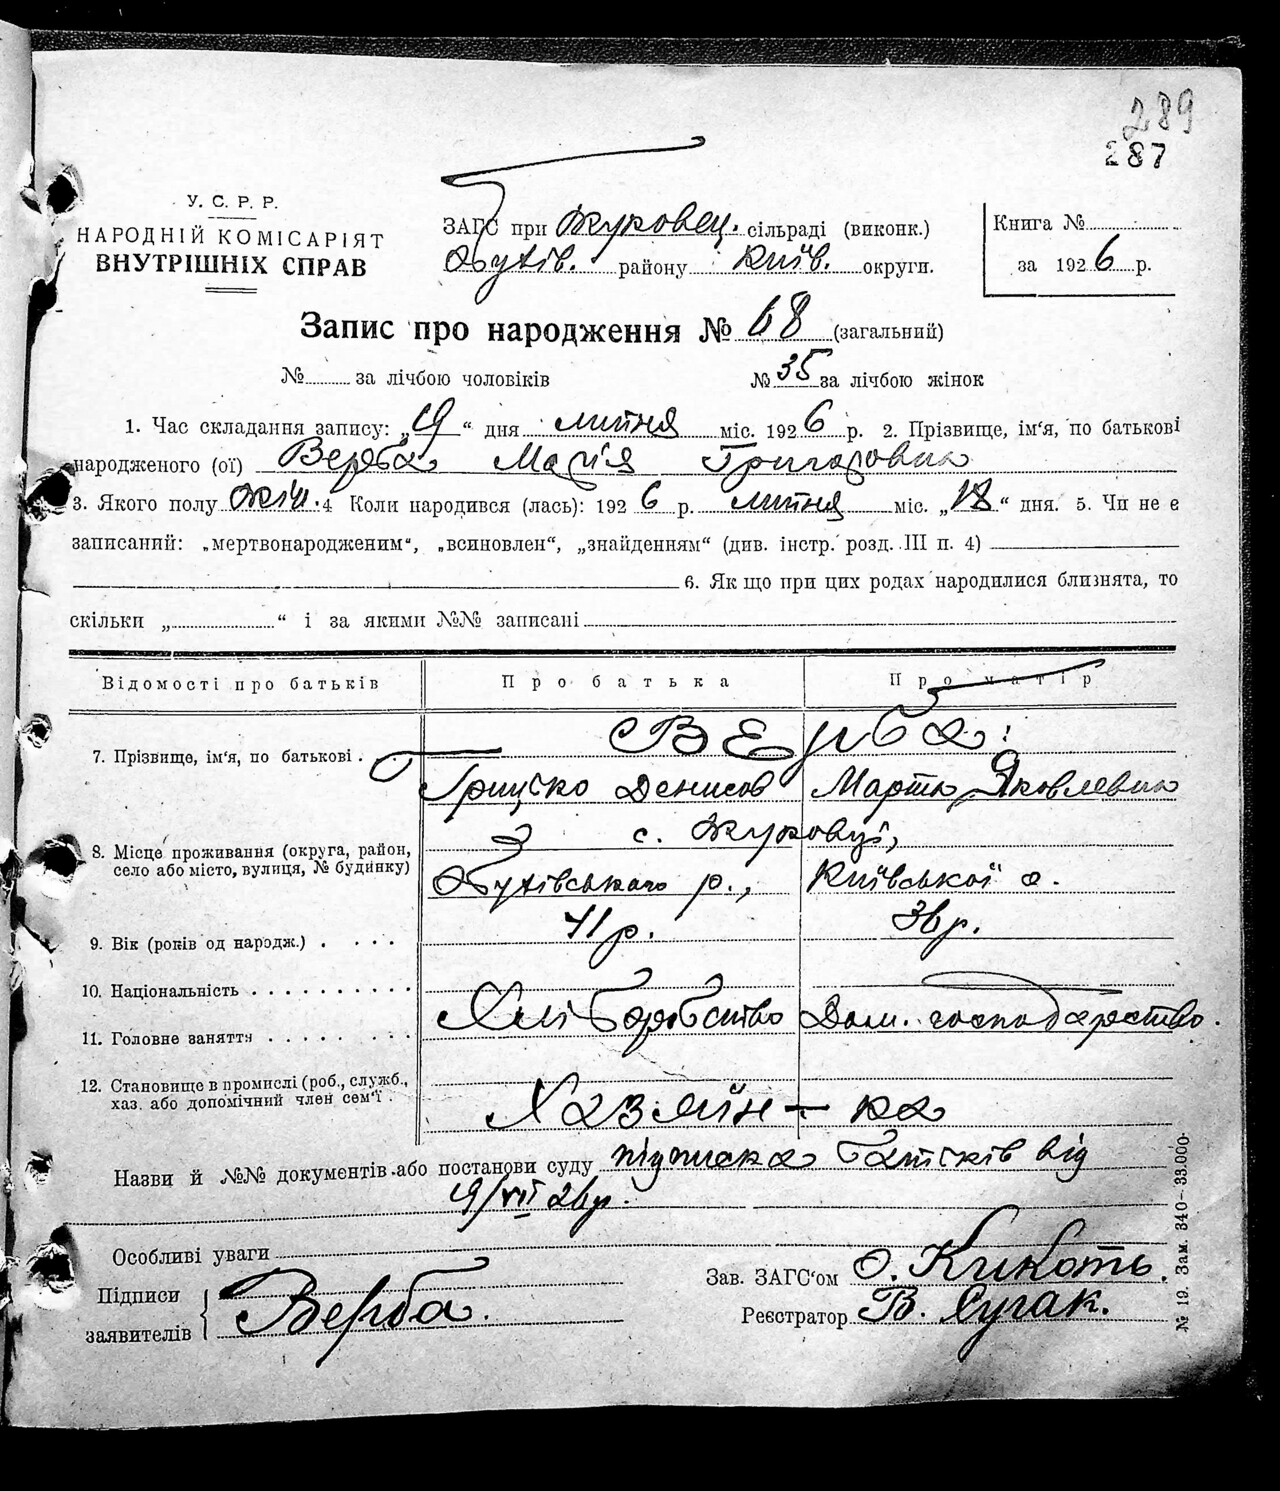 289
287
У. С. Р. Р.
НАРОДНІЙ КОМІСАРІЯТ
ВНУТРІШНІХ СПРАВ
ЗАГС при Жуковец. сільраді (виконк.)
Обухів. району Київ. округи.
Книга №
за 1926 р.
Запис про народження № 68 (загальний)
№ за лічбою чоловіків № 35 за лічбою жінок
1. Час складання запису: „19“ дня липня міс. 1926 р. 2. Прізвище, ім‘я, по батькові
народженого (ої) Верба Марія Григоровна
3. Якого полу жін. 4 Коли народився (лась): 1926 р. липня міс. „18“ дня. 5. Чи не є
записаний: „мертвонародженим“, „всиновлен“, „знайденням“ (див. інстр. розд. III п. 4)
6. Як що при цих родах народилися близнята, то
скільки „ “ і за якими №№ записані
Відомості про батьків Про батька Про матір
7. Прізвище, ім‘я, по батькові . Верба:
Грицько Денисов Марта Яковлевна
8. Місце проживання (округа, район, село або місто, вулиця, № будинку) з с. Жуковці,
Обухівського р., Київської о.
9. Вік (років од народж.) . . . . 41 р. 36 р.
10. Національність . . . . . . . . . .
11. Головне заняття . . . . . . . . Хліборобство Дом. господарство.
12. Становище в промислі (роб., служб., хаз. або допомічний член сем‘ї . Хазяїн – ка
Назви й №№ документів або постанови суду підписка батьків від
19/VII 26 р.
Особливі уваги
Підписи
заявителів Верба.
Зав. ЗАГС‘ом О. Кикоть.
Реєстратор В. Сугак.
№ 19. Зам. 340–33.000